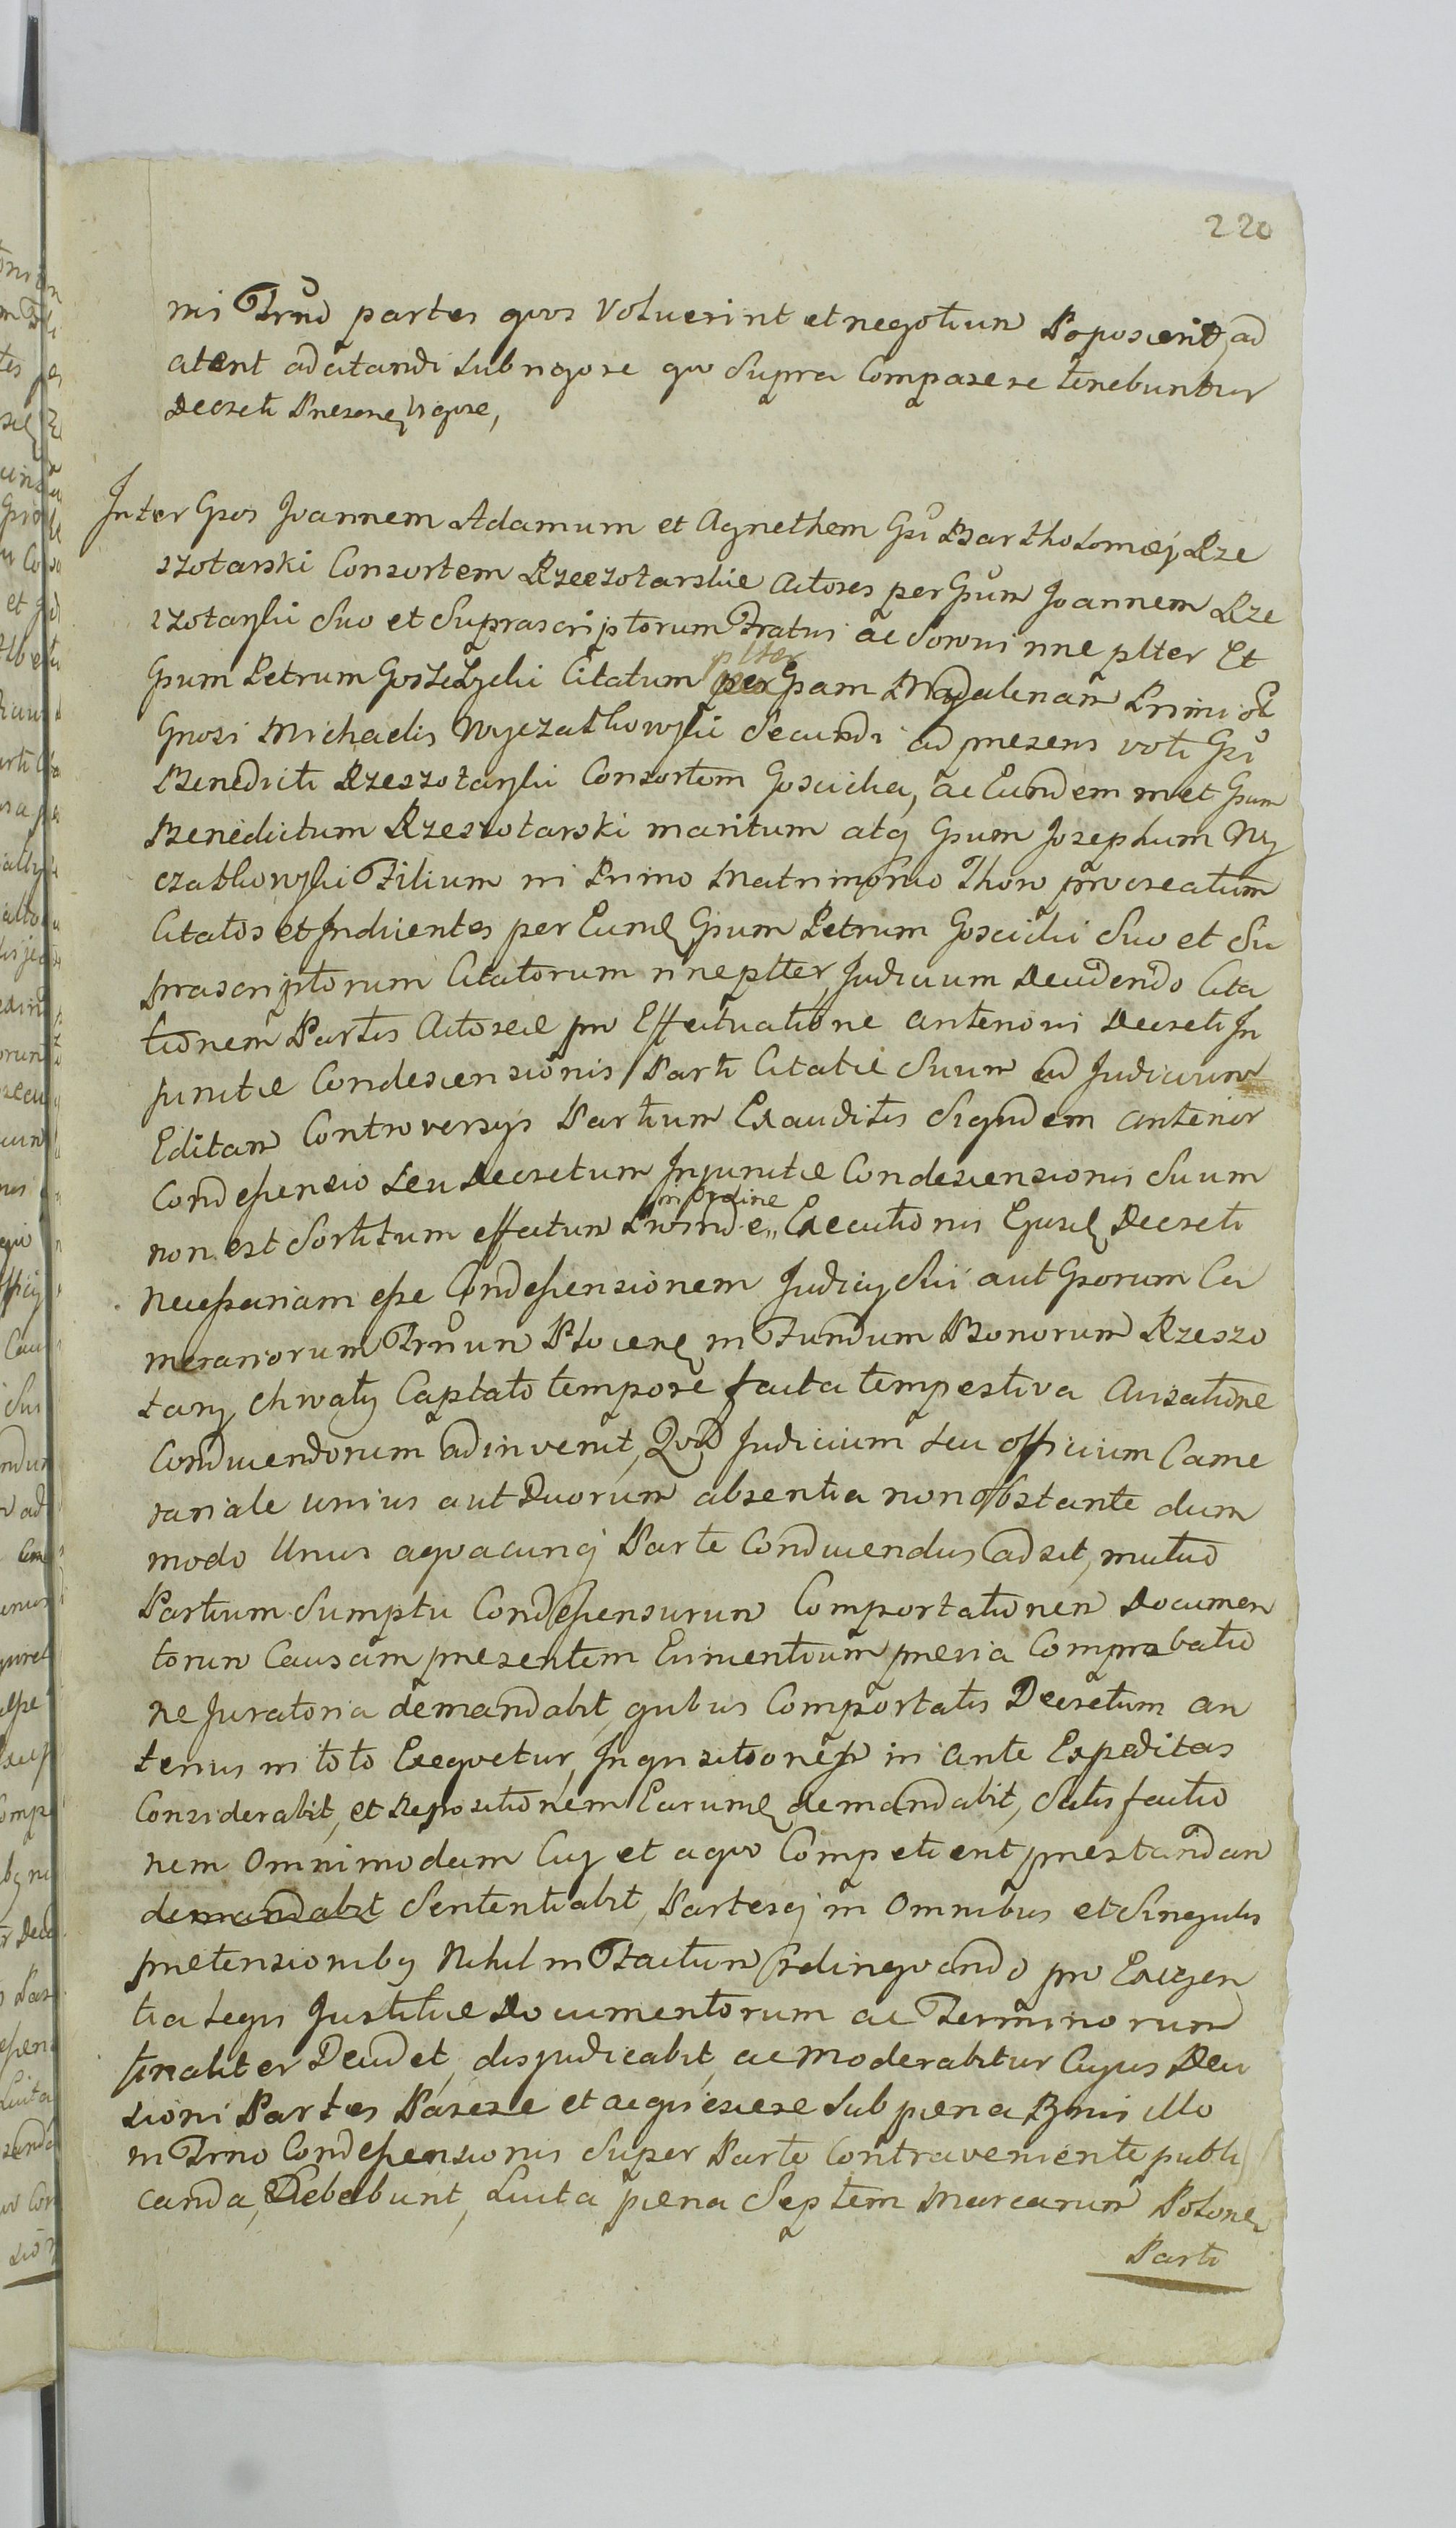 220
ni Trno partes quos Voluerint et negotium Poposcerit, ad
citent adcitandi sub rigore quo Supra Comparere tenebuntur
Decreti Presene vigore,
Inter Gsos Joannem Adamum et Agnethem Gsi Bartholomæj Rze
szotarski Consortem Rzeszotarskie Actores per Gsum Joannem Rze
szotarski Suo et Suprascriptorum Fratris ac Sororis nne plter Et
Gsum Petrum Citatum plter per Gsam Magdalenam Primi olt
Gnosi Michaelis Wyczałkowski Secundi ad presens voti Gsi
Benedicti Rzeszotarski Consortem Goscicka, ac Eundem met Gsum
Benedictum Rzeszotarski maritum atq Gsum Josephum Wy
czałkowski Filium in Primo Matrimonio Thoro procreatum
Citatos et Inducentes per Eund Gsum Petrum Goscicki Suo et Su
prascriptorum Citatorum nne plter, Judicium Decidendo Cita
tionem Partis Actoreæ pro Effectuatione anterioris Decreti In
junctæ Condescensionis Parti Citatæ Suum ad Judicium
Editam Controversys Partium Exauditis Siquidem anterior
Condescensio Seu Decretum Injunctæ Condescensionis Suum
non est Sortitum effectum Proinde in ordine Executionis Ejusd Decreti
Necessariam esse Condescensionem Judicy Sui aut Gsorum Ca
merariorum Trrum Plocens in Fundum Bonorum Rzeszo
tary Chwały Captato tempore facta tempestiva Avisatione
Conducendorum adinvenit, Quod Judicium Seu officium Came
rariale unius aut Duorum absentia non obstante dum
modo Unus a quacunq Parte Conducendus adsit, mutuo
Partium Sumptu Condescensurum Comportationem Documen
torum Causam presentem Eruentium previa Comprobatio
ne Juratoria demandabit, quibus Comportatis Decretum an
terius in toto Exequetur, Inquisitiones in ante Expeditas
Considerabit, et Repositionem Earumd demandabit, Satisfactio
nem Omnimodam Cuj et a quo Competierit prestandam
demandabit Sententiabit, Partesq in Omnibus et Singulis
pretensionibq Nihil in Factum relinquendo pro Exigen
tia Legis Justitiæ Documentorum ac Terminorum
finaliter Decidet, disjudicabit, ac Moderabitur Cujus Deci
sioni Partes Parere et acquiescere Sub pœna Bnis illo
in Trno Condescensionis Super Parte Contraveniente publi
canda, Debebunt, Luita pœna Septem Marcarum Polone
Parti